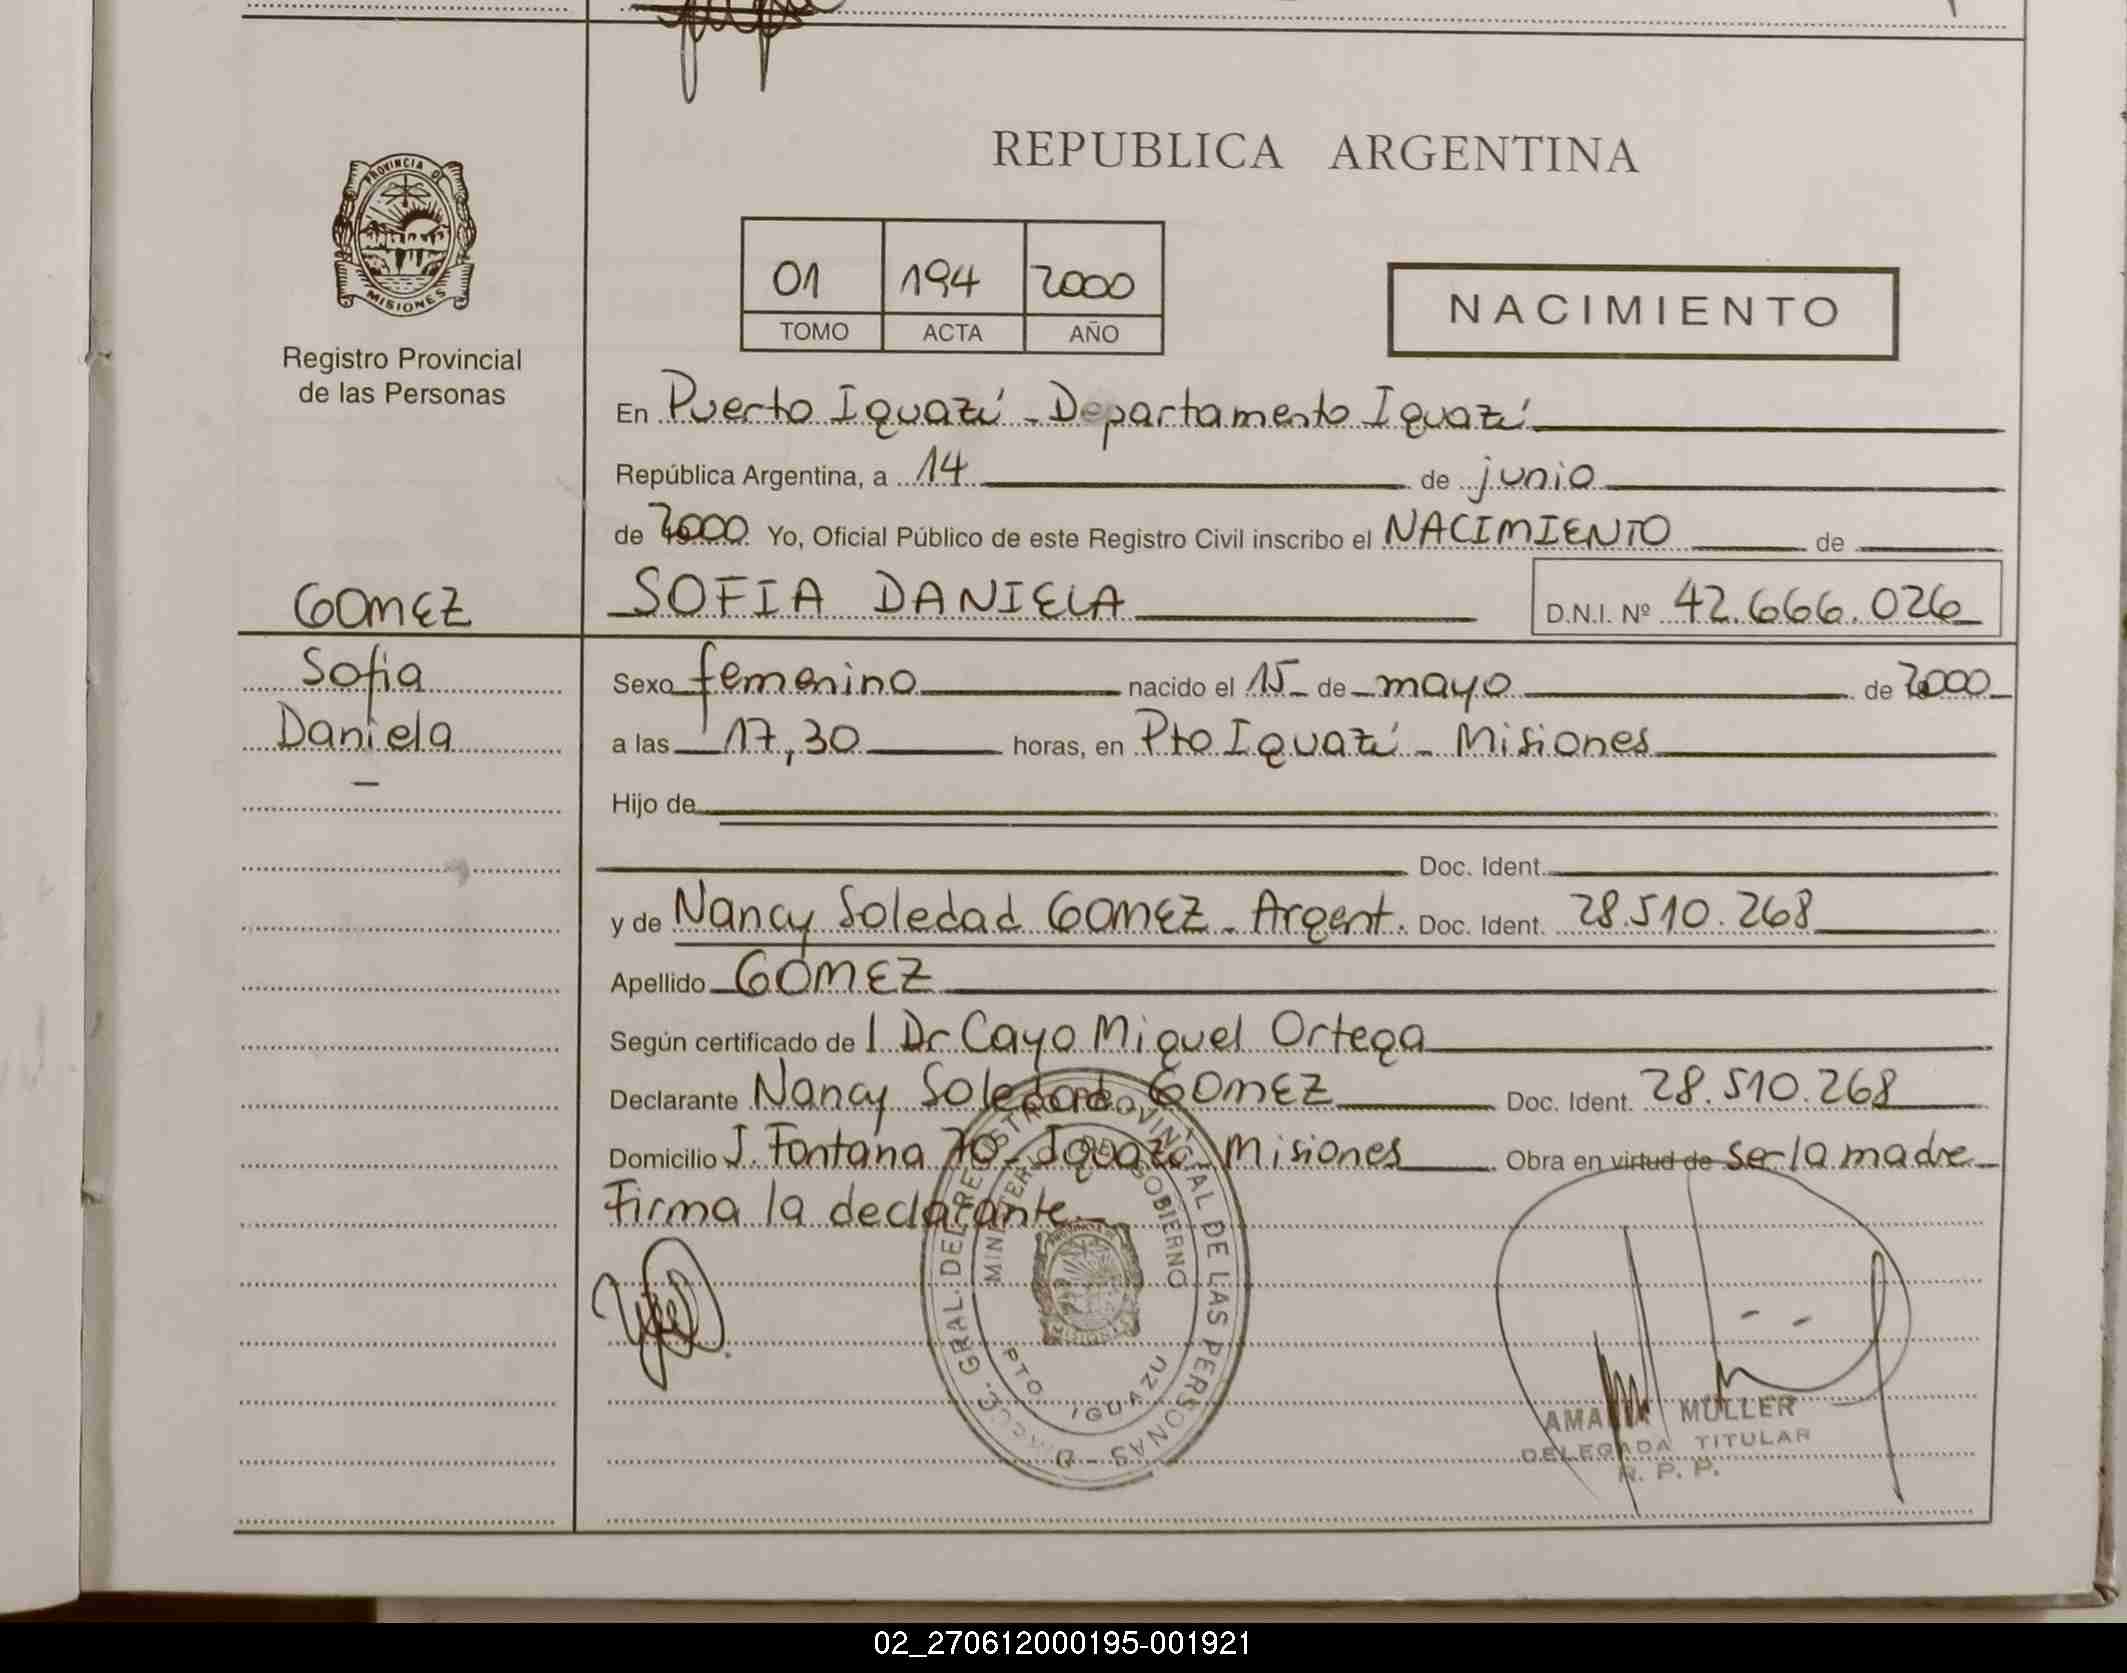 REPUBLICA ARGENTINA
PROVINCIA DE
MISIONES
Registro Provincial
de las Personas
01 194 2000
TOMO ACTA AÑO
NACIMIENTO
En Puerto Iguazú - Departamento Iguazú
República Argentina, a 14 de junio
de 2000 Yo, Oficial Público de este Registro Civil inscribo el NACIMIENTO de
GOMEZ
SOFIA DANIELA D.N.I. Nº 42.666.026
Sofia
Daniela
Sexo femenino nacido el 15 de mayo de 2000
a las 17,30 horas, en Pto Iguazú - Misiones
Hijo de
Doc. Ident.
y de Nancy Soledad GOMEZ - Argent. Doc. Ident. 28.510.268
Apellido GOMEZ
Según certificado de l Dr Cayo Miguel Ortega
Declarante Nancy Soledad GOMEZ Doc. Ident. 28.510.268
Domicilio J. Fontana 70 - Iguazú Misiones Obra en virtud de ser la madre
Firma la declarante
DIRECC. GRAL. DEL REGISTRO PROVINCIAL DE LAS PERSONAS
MINISTERIO DE GOBIERNO
PTO. IGUAZU
MULLER
DELEGADA TITULAR
R. P. P.
02_270612000195-001921